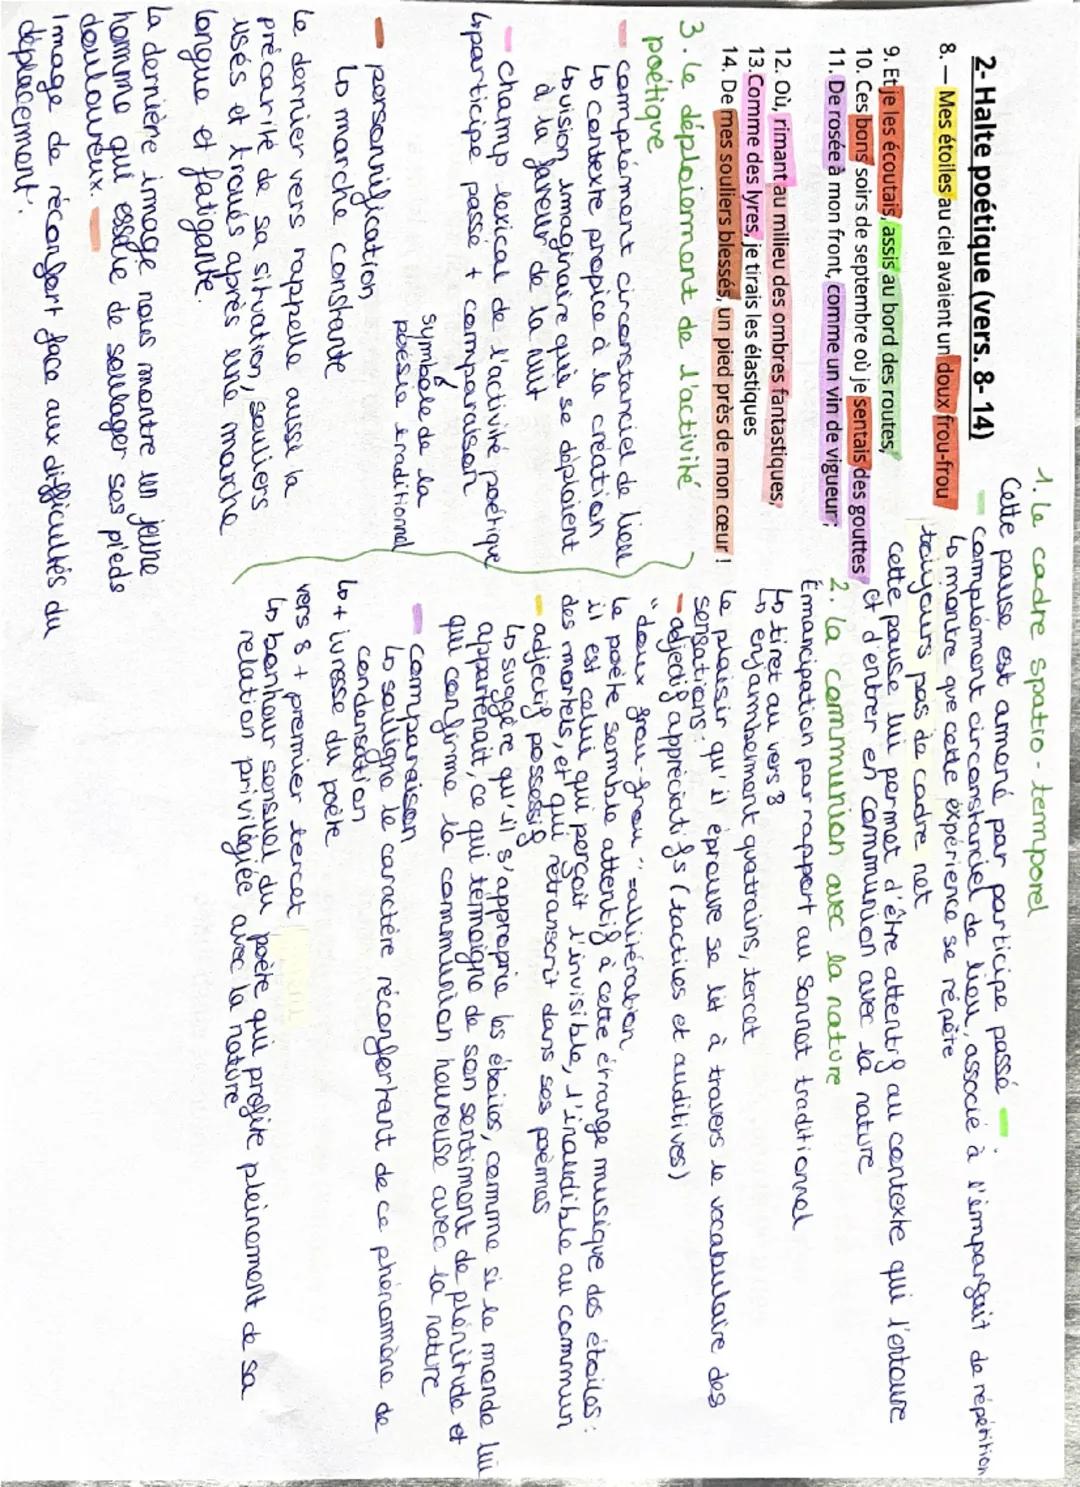 2- Halte poétique (vers. 8-14)
8. — Mes étoiles au ciel avaient un doux frou-frou
9. Et je les écoutais, assis au bord des routes,
10. Ces bons soirs de septembre où je sentais des gouttes
11. De rosée à mon front, comme un vin de vigueur ;
12. Où, rimant au milieu des ombres fantastiques,
13. Comme des lyres, je tirais les élastiques
14. De mes souliers blessés, un pied près de mon cœur !
1. Le cadre spatio-temporel
Cette pause est amené par participe passé
complément circonstanciel de lieu, associé à l'imparfait de répétition
↳ montre que cette expérience se répète
toujours pas de cadre net
cette pause lui permet d'être attentif au contexte qui l'entoure
et d'entrer en communion avec la nature
2. la communion avec la nature
Émancipation par rapport au sonnet traditionnel
↳ tiret au vers 8
↳ enjambement quatrains, tercet
Le plaisir qu'il éprouve se lit à travers le vocabulaire des
sensations :
- adjectif appréciatifs (tactiles et auditives)
"doux frou-frou" = allitération
Le poète semble attentif à cette étrange musique des étoiles :
il est celui qui perçoit l'invisible, l'inaudible au commun
des mortels, et qui retranscrit dans ses poèmes
- adjectif possessif
↳ suggère qu'il s'approprie les étoiles, comme si le monde lui
appartenait, ce qui témoigne de son sentiment de plénitude et
qui confirme la communion heureuse avec la nature
- comparaison
↳ souligne le caractère réconfortant de ce phénomène de
condensation
↳ + ivresse du poète
vers 8 + premier tercet
↳ bonheur sensuel du poète qui profite pleinement de sa
relation privilégiée avec la nature
3. le déploiement de l'activité
poétique
- complément circonstanciel de lieu
↳ contexte propice à la création
↳ vision imaginaire qui se déploient
à la faveur de la nuit
- champ lexical de l'activité poétique
↳ participe passé + comparaison
symbole de la
poésie traditionnel
- personnification
↳ marche constante
Le dernier vers rappelle aussi la
précarité de sa situation, souliers
usés et troués après une marche
longue et fatigante.
La dernière image nous montre un jeune
homme qui essaie de soulager ses pieds
douloureux.
Image de réconfort face aux difficultés du
déplacement.